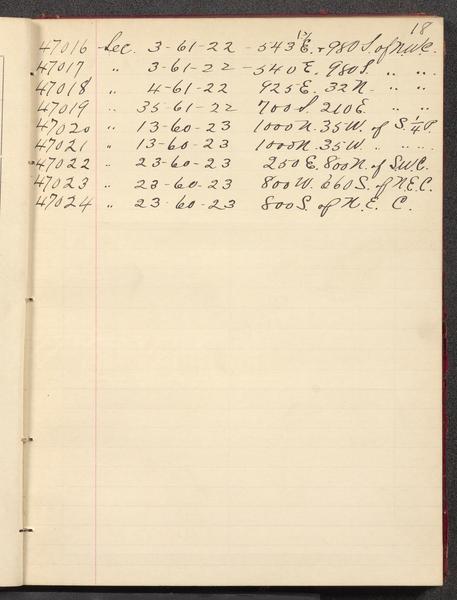 18
47016 Sec. 3-61-22 - 543 E. + 980 S. of N.W.C.
47017 " 3-61-22 - 540 E. 980 S. " "
47018 " 4-61-22 925 E. 32 N. " "
47019 " 35-61-22 700 S. 210 E. " "
47020 " 13-60-23 1000 N. 35 W. of S. 1/4 P.
47021 " 13-60-23 1000 N. 35 W. " " "
47022 " 23-60-23 250 E. 800 N. of S.W.C.
47023 " 23-60-23 800 W. 660 S. of N.E.C.
47024 " 23-60-23 800 S. of N.E. C.